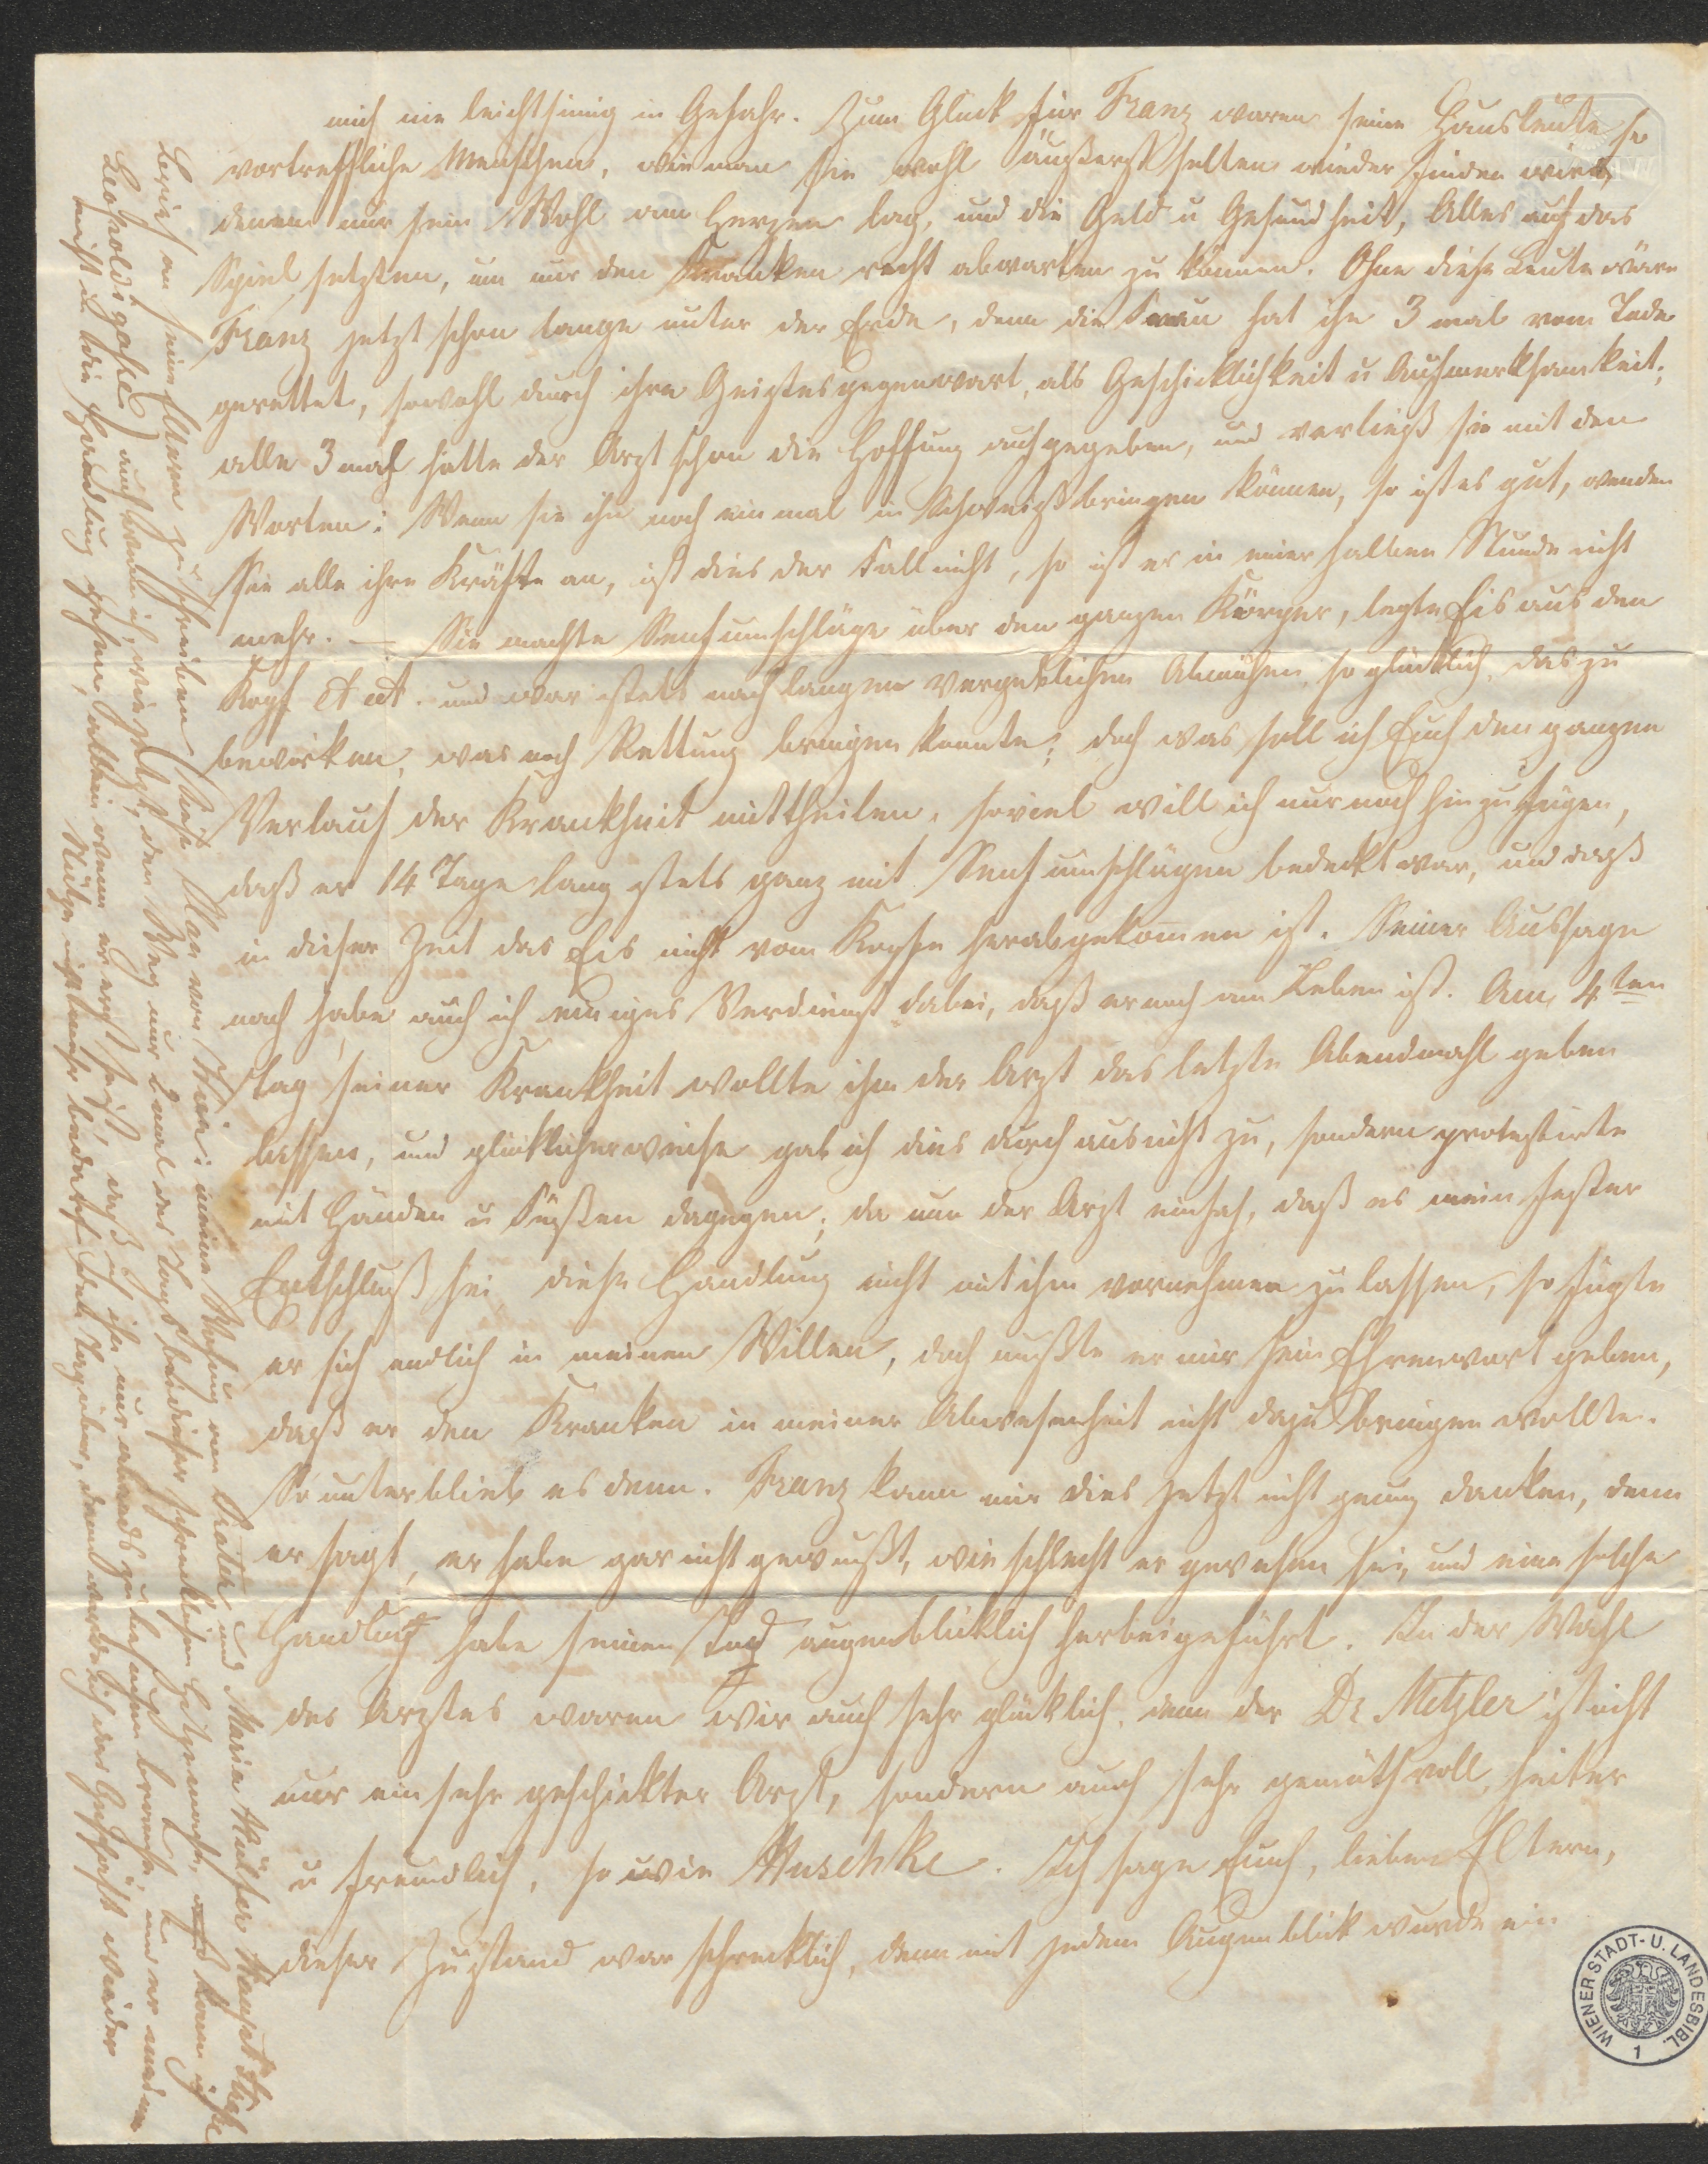 mich nie leichtsinnig in Gefahr. Zum Glück für Franz waren seine Hausleute so
vortreffliche Menschen, wie man sie wohl äußerst selten wieder finden wird,
denen nur sein Wohl am Herzen lag, und die Geld u Gesundheit, Alles auf das
Spiel setzten, um nur den Kranken recht abwarten zu können. Ohne diese Leute wäre
Franz jetzt schon lange unter der Erde, denn die Frau hat ihn 3 mal vom Tode
gerettet, sowohl durch ihre Geistesgegenwart, als Geschicklichkeit u Aufmerksamkeit;
alle 3 mal hatte der Arzt schon die Hoffnung aufgegeben, und verließ sie mit den
Worten: Wenn sie ihn noch einmal in Schweiß bringen können, so ist es gut, wenden
Sie alle ihre Kräfte an, ist dies der Fall nicht, so ist er in einer halben Stunde nicht
mehr. — Sie machte Senfumschläge über den ganzen Körper, legte Eis auf den
Kopf et ct. und war stets nach langem vergeblichen Abmühen so glücklich, das zu
bewirken, was noch Rettung bringen konnte; doch was soll ich Euch den ganzen
Verlauf der Krankheit mittheilen, soviel will ich nur noch hinzufügen,
daß er 14 Tage lang stets ganz mit Senfumschlägen bedeckt war, und daß
in dieser Zeit das Eis nicht vom Kopfe herabgekommen ist. Seiner Aussage
nach habe auch ich einiges Verdienst dabei, daß er noch am Leben ist. Am 4ten
Tag seiner Krankheit wollte ihm der Arzt das letzte Abendmahl geben
lassen, und glücklicherweise gab ich dies durchaus nicht zu, sondern protestirte
mit Händen u Füßen dagegen; da nun der Arzt einsah, daß es mein fester
Entschluß sei diese Handlung nicht mit ihm vornehmen zu lassen, so fügte
er sich endlich in meinen Willen, doch mußte er mir sein Ehrenwort geben,
daß er den Kranken in meiner Abwesenheit nicht dazu bringen wollte.
So unterblieb es denn. Franz kann mir dies jetzt nicht genug danken, denn
er sagt, er habe gar nicht gewußt, wie schlecht er gewesen sei, und eine solche
Handlung habe seinen Tod augenblicklich herbeigeführt. In der Wahl
des Arztes waren wir auch sehr glücklich, denn der Dr Metzler ist nicht
nur ein sehr geschickter Arzt, sondern auch sehr gemüthvoll, heiter
u freundlich, so wie Huschke. Ich sage Euch, lieben Eltern,
dieser Zustand war schrecklich, denn mit jedem Augenblick wurde ein
an seine Eltern zu schreiben (siehe Plan von Wien: meine Wohnung am Prater und Maria Hülfer Haupt Straße
Leopoldsgasse) auch kann ich, wie gesagt, den Weg nur 2 mal des Tags bei dieser schrecklichen Hitze machen,
nicht in die Handlung gehen, allein wenn er erst heiß, daß ich ihn nur abends zu besuchen brauche, und er meiner
Pflege nicht mehr bedarf den Tag über, dann werde ich das Geschäft wieder
WIENER STADT- U. LANDESBIBL.
1